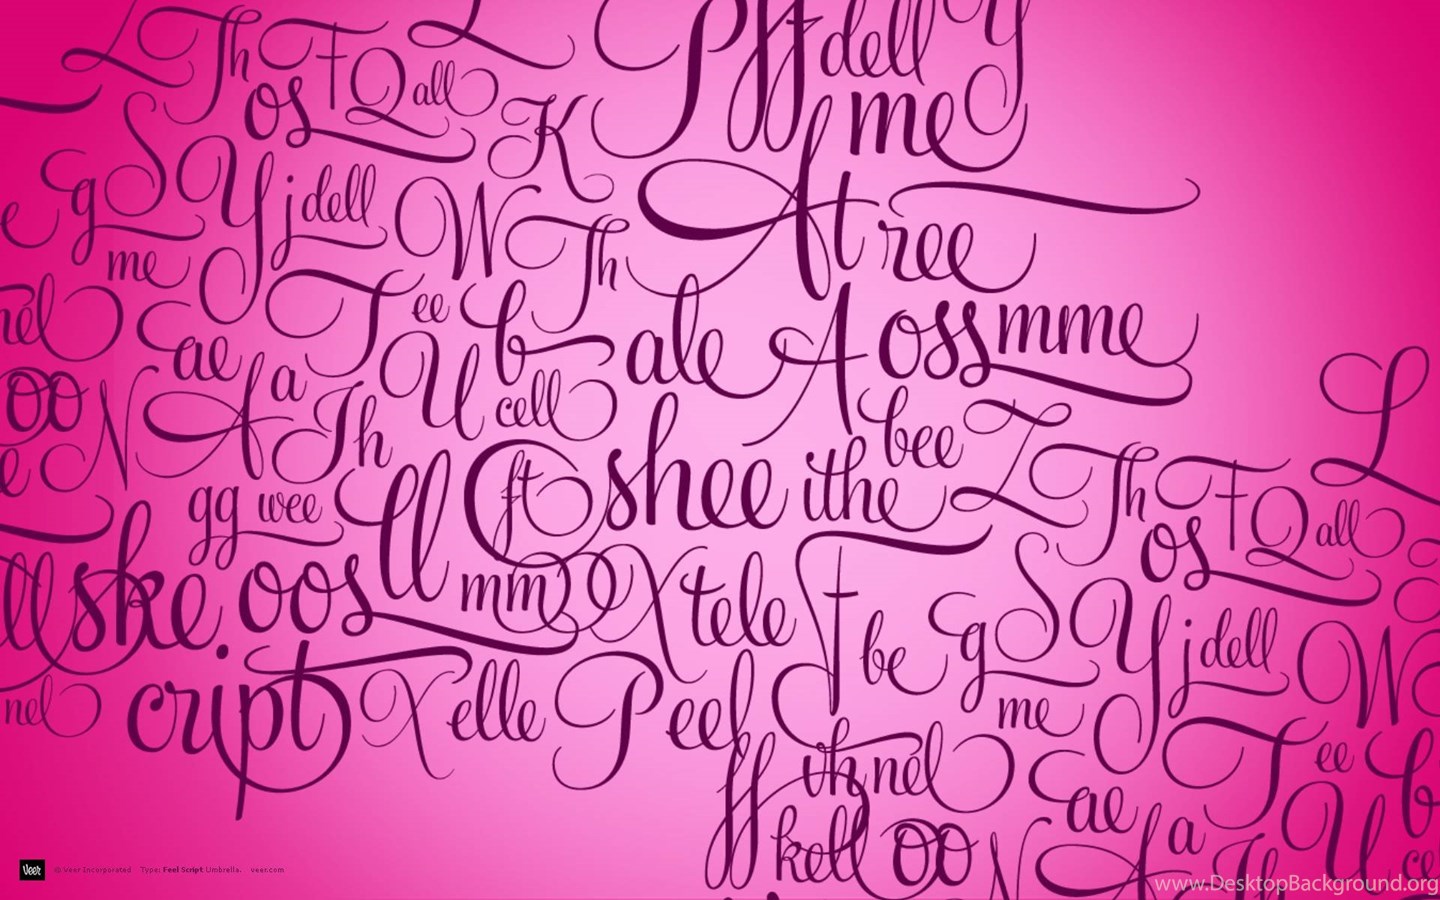 L Th F Q all L Pff dell Y
os K me
e g S Y j dell W Th At ree
me
nel T ee b ale A oss mme
ae
oo N A a Th U cell bee L
e gg wee ll ft shee ithe Z Th F Q all
os
ll ske. oos mm X tele F be g S Y j dell W
me
nel cript X elle Peel
uh nel T ee b
ff kell oo N ae a Th U ce
Veer © Veer Incorporated Type: Feel Script Umbrella. veer.com
www.DesktopBackground.org